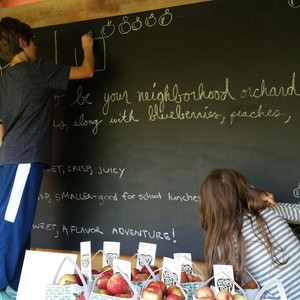 to be your neighborhood orchard
es, along with blueberries, peaches,
EET, CRISP, JUICY
SMALLER-good for school lunches
WEET, A FLAVOR ADVENTURE!